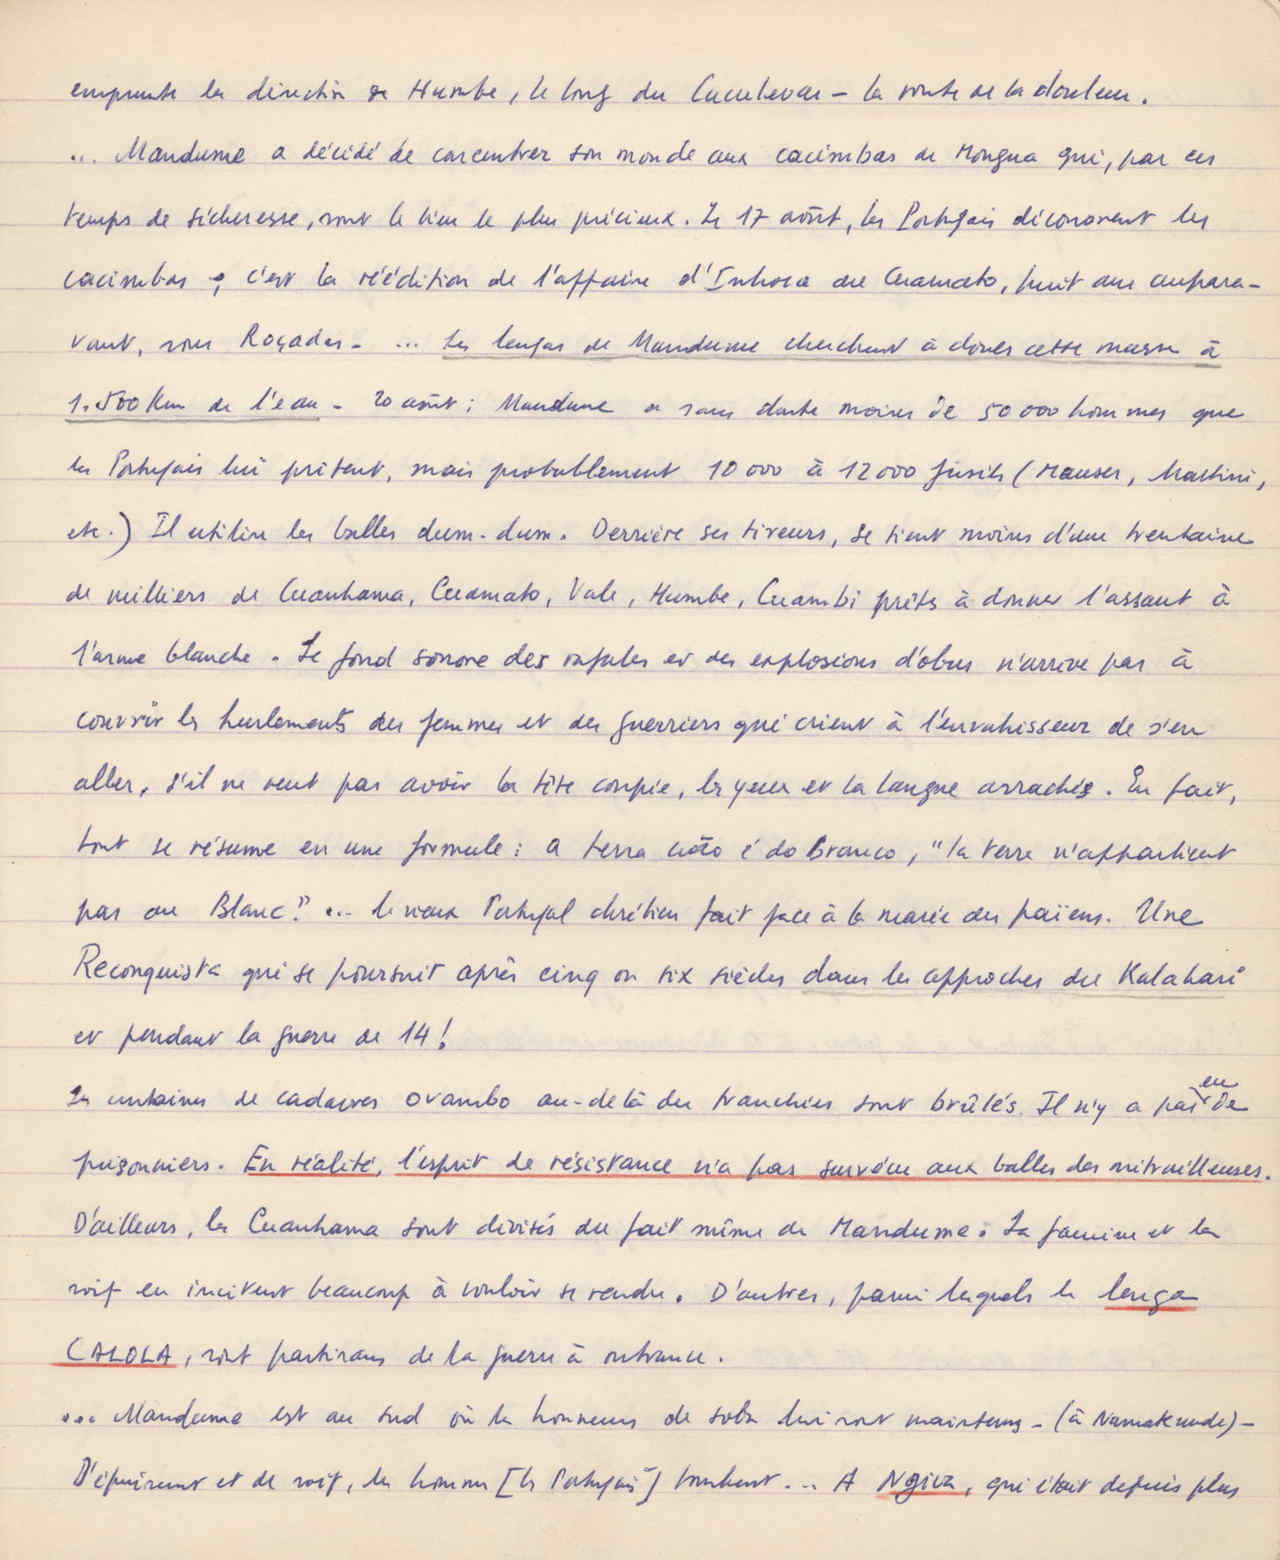 emprunte la direction de Humbe, le long du Caculevar – la route de la douleur.
... Mandume a décidé de concentrer son monde aux cacimbas de Mongua qui, par ces
temps de sécheresse, sont le lieu le plus précieux. Le 17 août, les Portugais découvrent les
cacimbas ; c'est la réédition de l'affaire d'Inhoca au Cuamato, huit ans aupara-
vant, sous Roçadas – ... Les lengas de Mandume cherchent à clouer cette masse à
1.500 Km de l'eau – 20 août : Mandume a sans doute moins de 50 000 hommes que
les Portugais lui prêtent, mais probablement 10 000 à 12 000 fusils (Mauser, Martini,
etc.) Il utilise les balles dum-dum. Derrière ses tireurs, se tient moins d'une trentaine
de milliers de Cuanhama, Cuamato, Vale, Humbe, Cuambi prêts à donner l'assaut à
l'arme blanche. Le fond sonore des rafales et des explosions d'obus n'arrive pas à
couvrir les hurlements des femmes et des guerriers qui crient à l'envahisseur de s'en
aller, s'il ne veut pas avoir la tête coupée, les yeux et la langue arrachés. En fait,
tout se résume en une formule : a terra não é do Branco, "la terre n'appartient
pas au Blanc." ... le vieux Portugal chrétien fait face à la marée des païens. Une
Reconquista qui se poursuit après cinq ou six siècles dans les approches du Kalahari
et pendant la guerre de 14 !
Les centaines de cadavres ovambo au-delà des tranchées sont brûlés. Il n'y a pas eu de
prisonniers. En réalité, l'esprit de résistance n'a pas survécu aux balles des mitrailleuses.
D'ailleurs, les Cuanhama sont divisés du fait même de Mandume. La famine et la
soif en incitent beaucoup à vouloir se rendre. D'autres, parmi lesquels le lenga
CALOLA, sont partisans de la guerre à outrance.
... Mandume est au sud où les honneurs de soba lui sont maintenus – (à Namakunde) –
D'épuisement et de soif, les hommes [les Portugais] tombent ... A Ngiva, qui était depuis plus